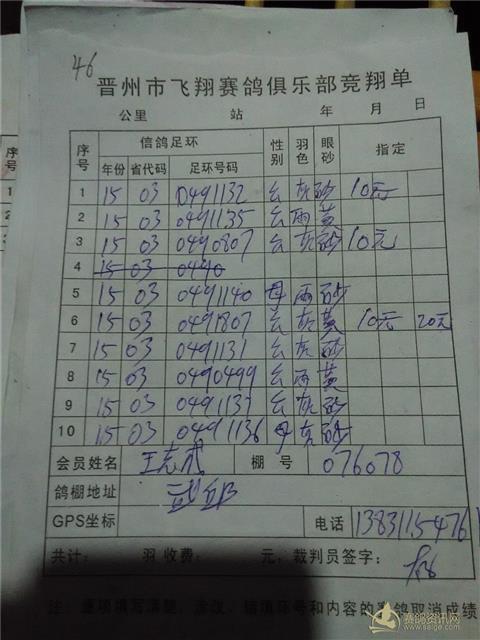 46
晋州市飞翔赛鸽俱乐部竞翔单
公里 站 年 月 日
序号 信鸽足环 性别 羽色 眼砂 指定
年份 省代码 足环号码
1 15 03 0491132 公 灰 砂 10元
2 15 03 0491135 公 雨 黄
3 15 03 0490807 公 灰 砂 10元
4 15 03 0490
5 15 03 0491140 母 雨 砂
6 15 03 0491807 公 灰 黄 10元 20元
7 15 03 0491131 公 灰 砂
8 15 03 0490499 公 雨 黄
9 15 03 0491137 公 灰 砂
10 15 03 0491136 母 灰 砂
会员姓名 王志 棚号 076078
鸽棚地址
GPS坐标 电话 13831154761
共计: 羽 收费: 元, 裁判员签字:
注: 逐项填写清楚、涂改、错填环号和内容的赛鸽取消成绩
赛鸽资讯网
www.saige.com